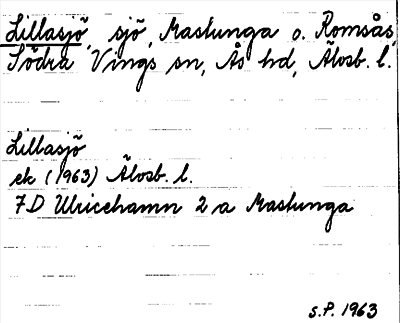 Lillasjö, sjö, Mastunga o. Romsås,
Södra Vings sn, Ås hd, Älvsb. l.
Lillasjö
ek (1963) Älvsb. l.
7D Ulricehamn 2a Mastunga
S.P. 1963